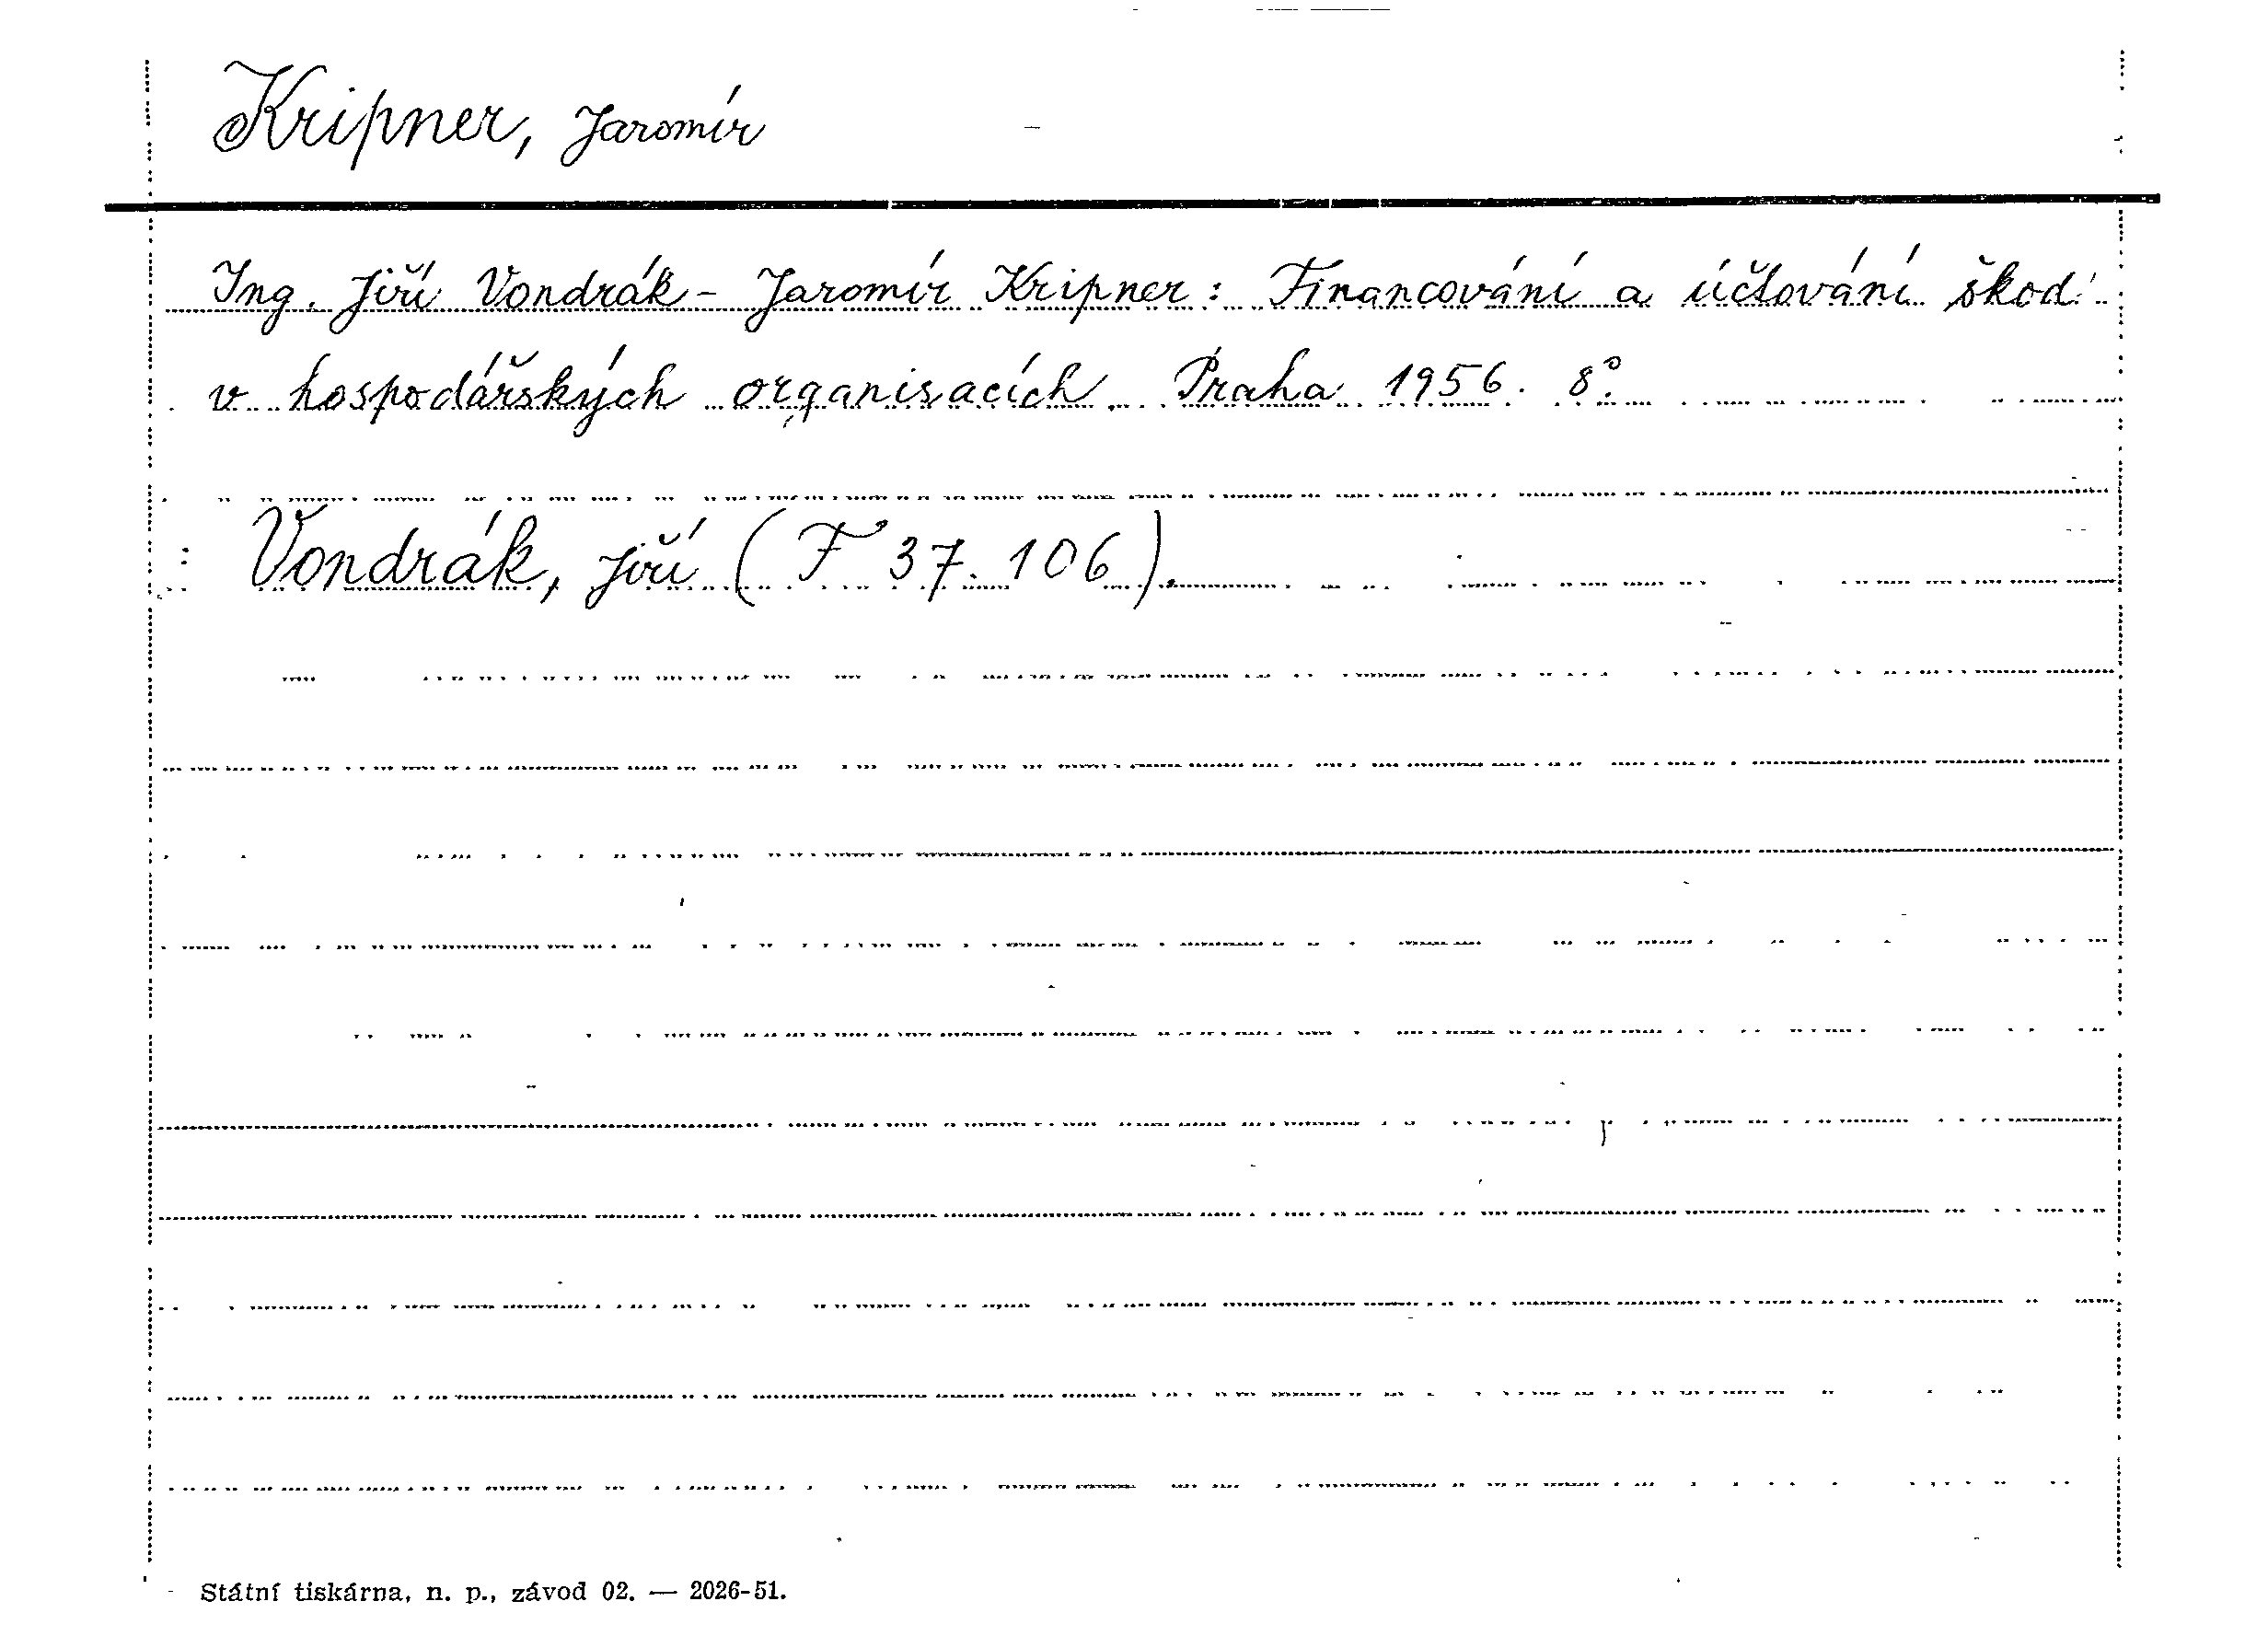 Kripner, Jaromír
Ing. Jiří Vondrák - Jaromír Kripner: Financování a účtování škod
v hospodářských organisacích. Praha 1956. 8°.
: Vondrák, Jiří (F 37.106).
Státní tiskárna, n. p., závod 02. — 2026-51.